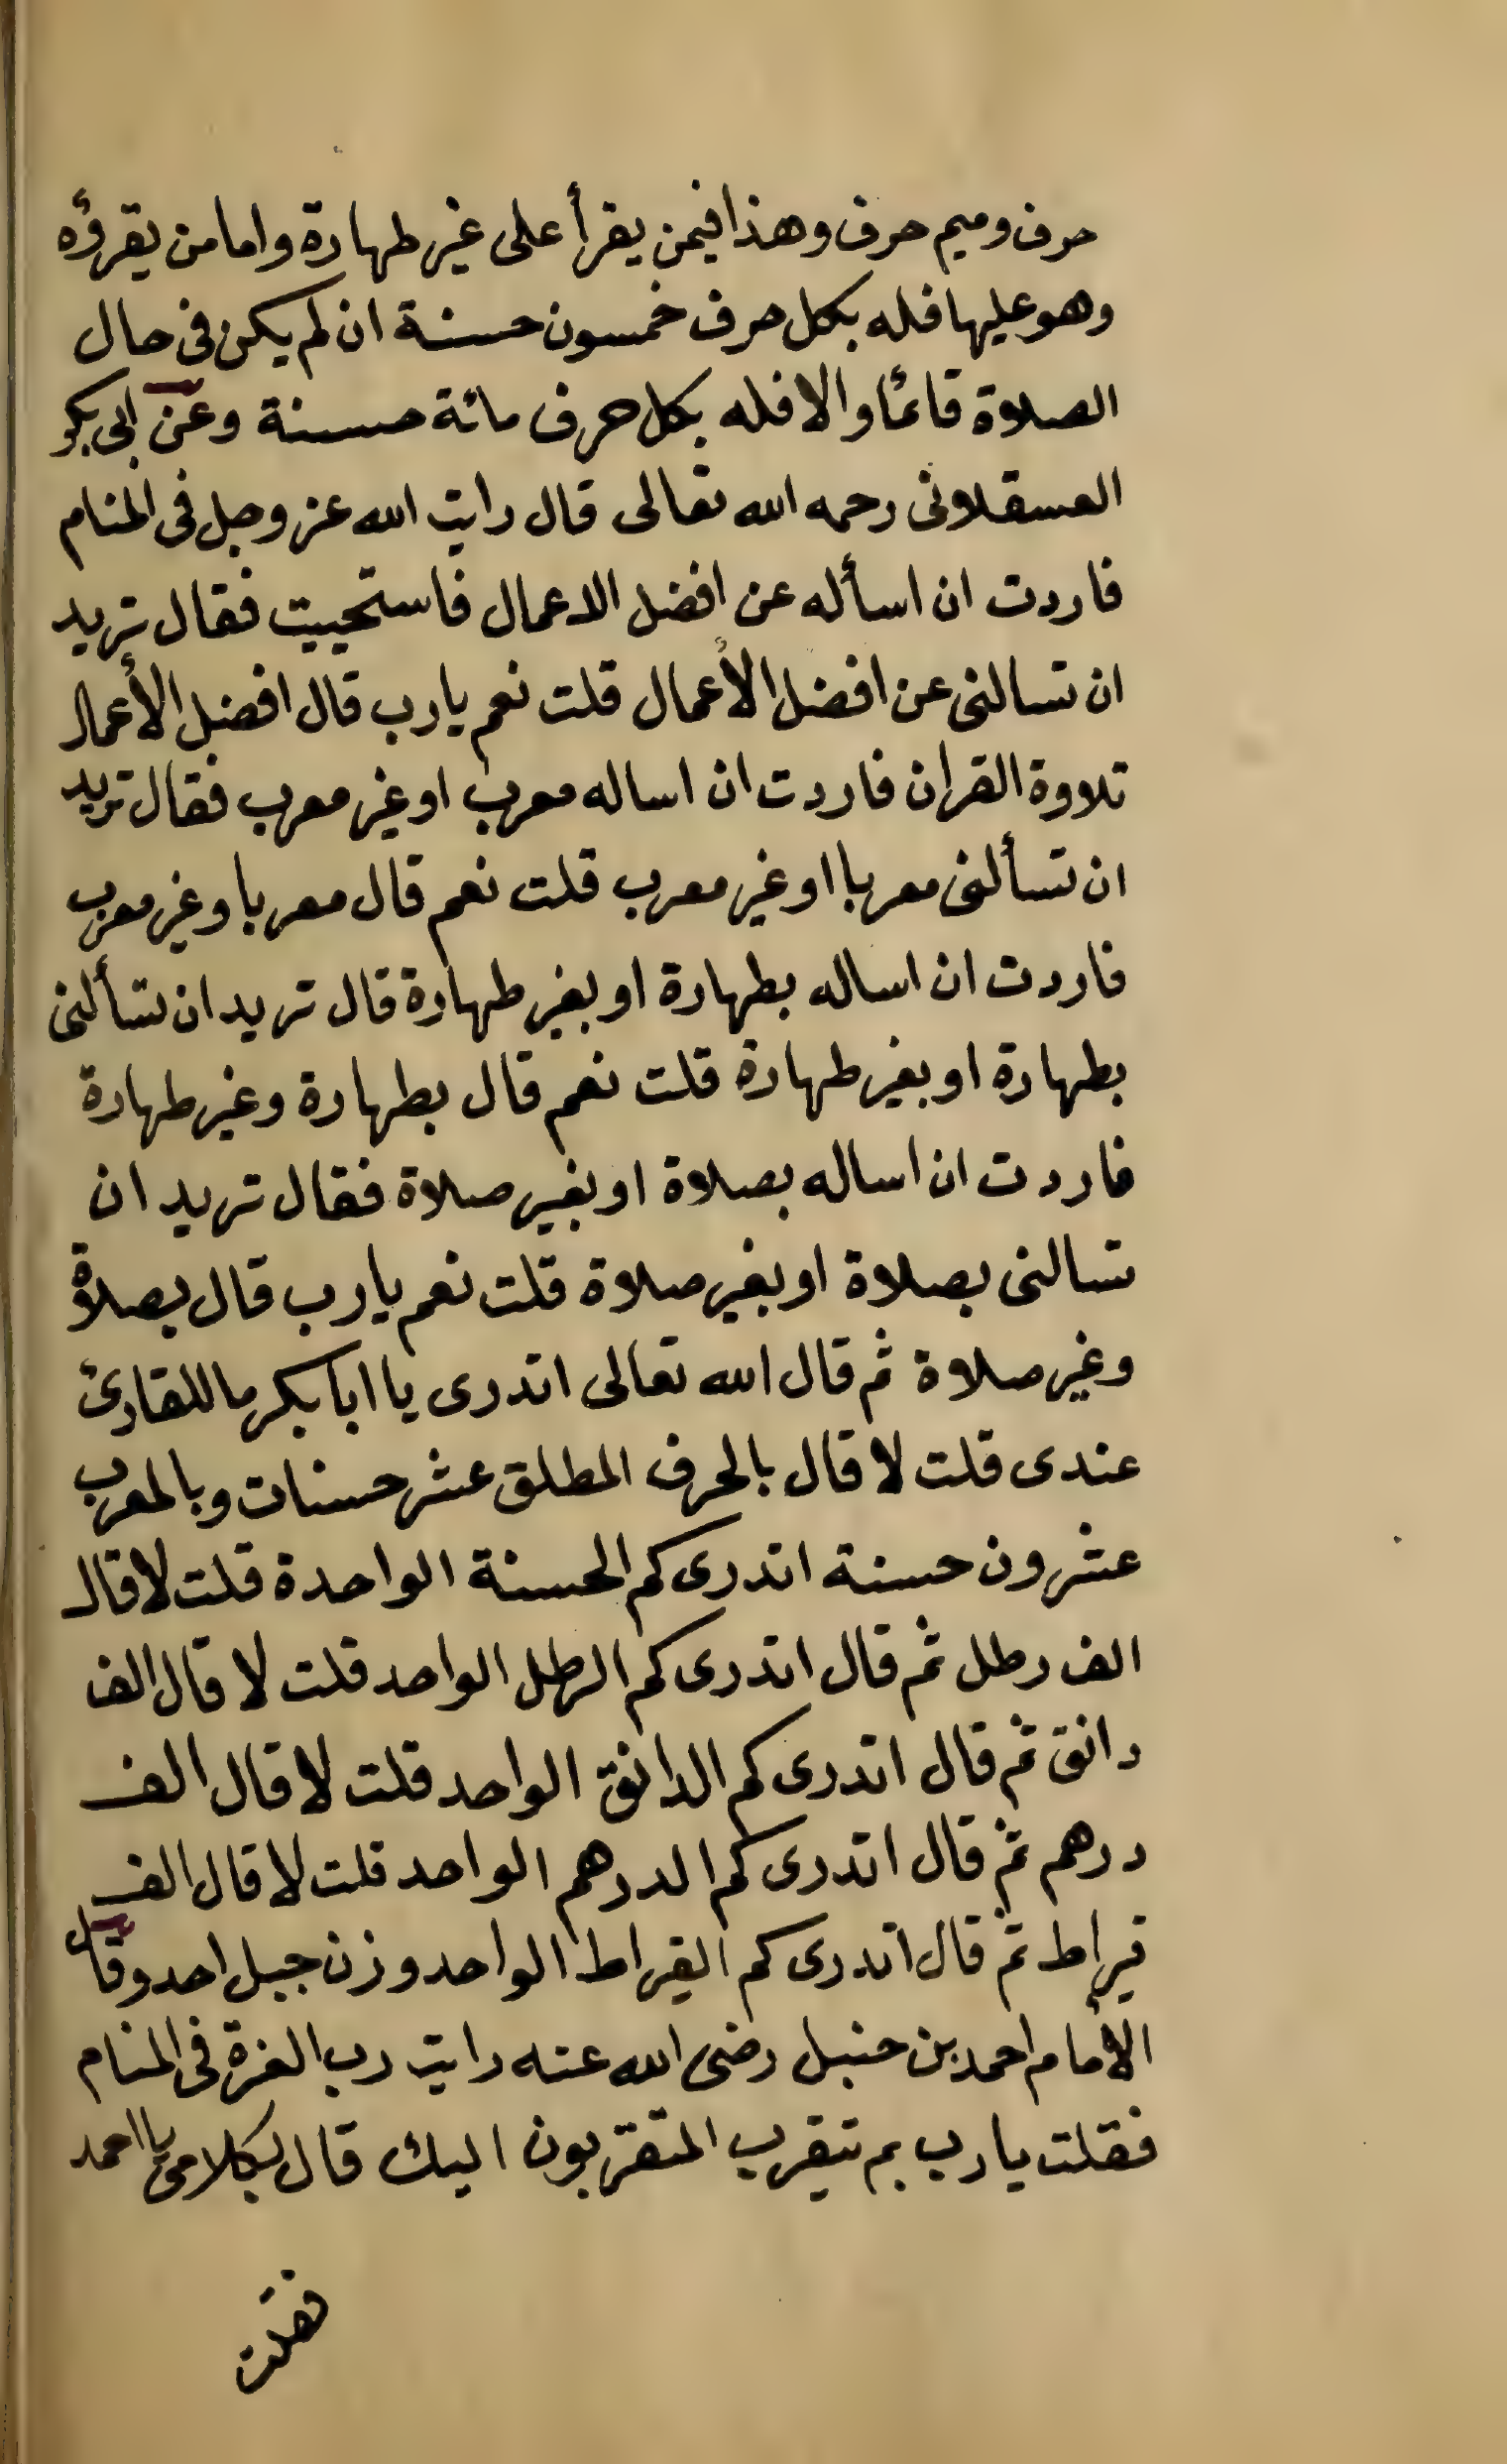 حرف وميم حرف وهذا فيمن يقرأ على غير طهارة واما من يقرؤه
وهو عليها فله بكل حرف خمسون حسنة ان لم يكن فى حال
الصلاة قائمًا والا فله بكل حرف مائة حسنة وعن ابى بكر
العسقلانى رحمه الله تعالى قال رايت الله عز وجل فى المنام
فاردت ان اسأله عن افضل الاعمال فاستحييت فقال تريد
ان تسالنى عن افضل الأعمال قلت نعم يارب قال افضل الأعمال
تلاوة القران فاردت ان اساله معرب او غير معرب فقال تريد
ان تسألنى معربا او غير معرب قلت نعم قال معربا وغير معرب
فاردت ان اساله بطهارة او بغير طهارة قال تريد ان تسألنى
بطهارة او بغير طهارة قلت نعم قال بطهارة وغير طهارة
فاردت ان اساله بصلاة او بغير صلاة فقال تريد ان
تسالنى بصلاة او بغير صلاة قلت نعم يارب قال بصلاة
وغير صلاة ثم قال الله تعالى اتدرى يا ابا بكر ما للقارئ
عندى قلت لا قال بالحرف المطلق عشر حسنات وبالمعرب
عشرون حسنة اتدرى كم الحسنة الواحدة قلت لا قال
الف رطل ثم قال اتدرى كم الرطل الواحد قلت لا قال الف
دانق ثم قال اتدرى كم الدانق الواحد قلت لا قال الف
درهم ثم قال اتدرى كم الدرهم الواحد قلت لا قال الف
قيراط ثم قال اتدرى كم القيراط الواحد وزن جبل احد وقال
الأمام احمد بن حنبل رضى الله عنه رايت رب العزة فى المنام
فقلت يارب بم تتقرب المتقربون اليك قال بكلامى يا احمد
فقلت